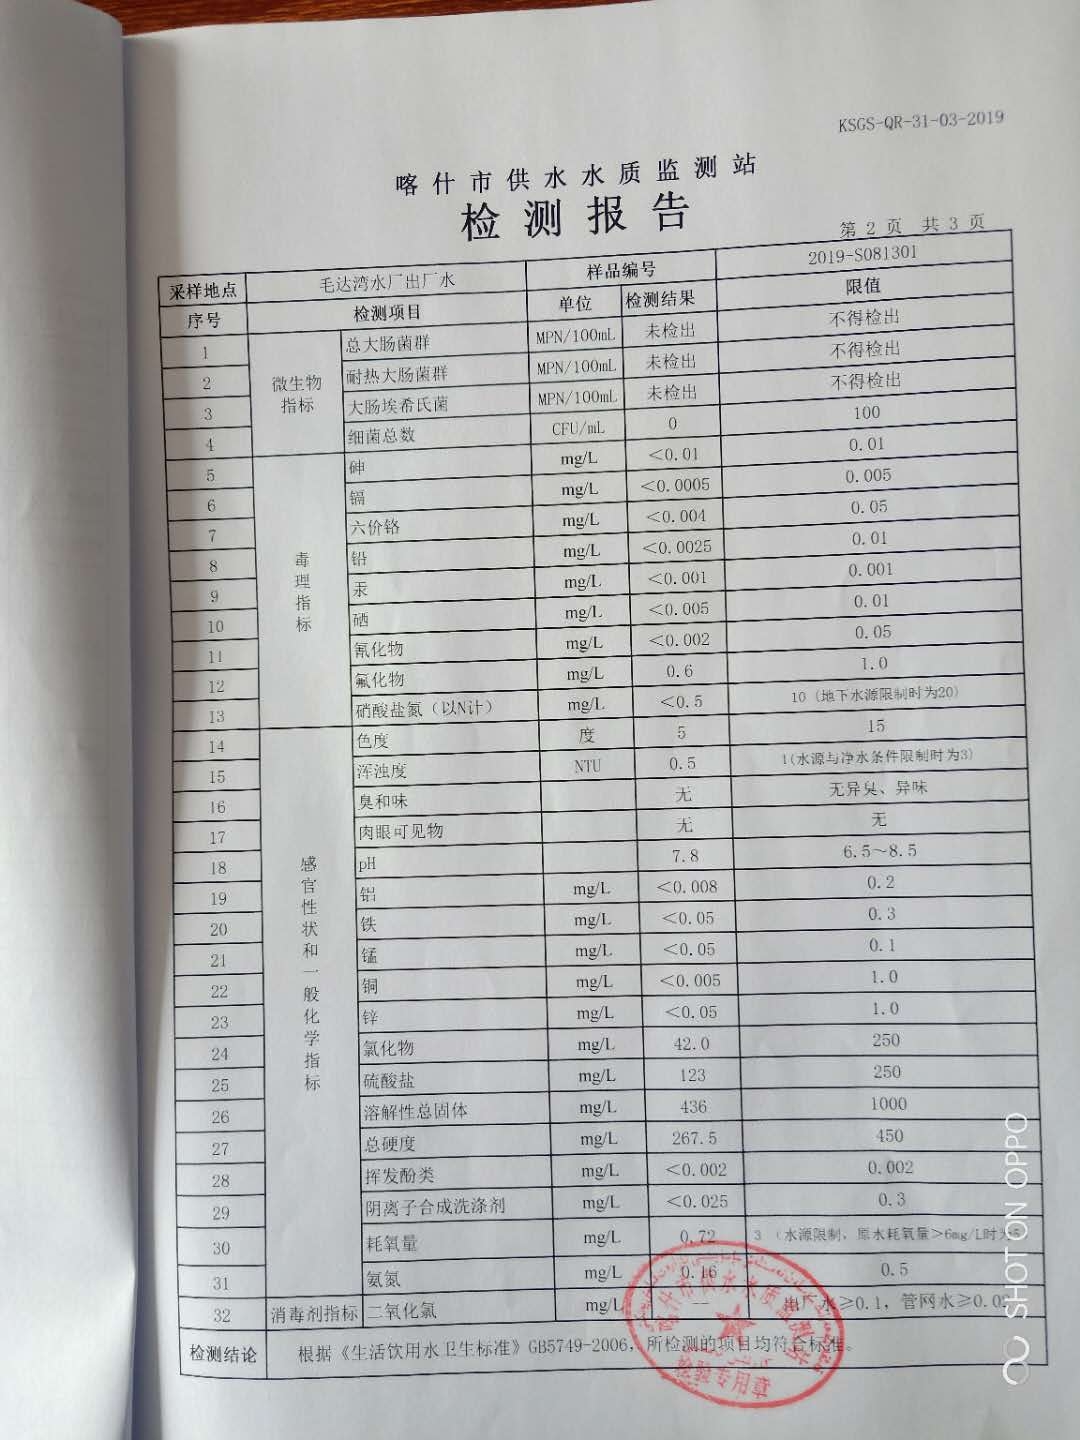 KSGS-QR-31-03-2019
喀什市供水水质监测站
检测报告
第 2 页 共 3 页
采样地点 毛达湾水厂出厂水 样品编号 2019-S081301
序号 检测项目 单位 检测结果 限值
微生物指标
1 总大肠菌群 MPN/100mL 未检出 不得检出
2 耐热大肠菌群 MPN/100mL 未检出 不得检出
3 大肠埃希氏菌 MPN/100mL 未检出 不得检出
4 细菌总数 CFU/mL 0 100
毒理指标
5 砷 mg/L <0.01 0.01
6 镉 mg/L <0.0005 0.005
7 六价铬 mg/L <0.004 0.05
8 铅 mg/L <0.0025 0.01
9 汞 mg/L <0.001 0.001
10 硒 mg/L <0.005 0.01
11 氰化物 mg/L <0.002 0.05
12 氟化物 mg/L 0.6 1.0
13 硝酸盐氮（以N计） mg/L <0.5 10（地下水源限制时为20）
感官性状和一般化学指标
14 色度 度 5 15
15 浑浊度 NTU 0.5 1(水源与净水条件限制时为3)
16 臭和味 无 无异臭、异味
17 肉眼可见物 无 无
18 pH 7.8 6.5～8.5
19 铝 mg/L <0.008 0.2
20 铁 mg/L <0.05 0.3
21 锰 mg/L <0.05 0.1
22 铜 mg/L <0.005 1.0
23 锌 mg/L <0.05 1.0
24 氯化物 mg/L 42.0 250
25 硫酸盐 mg/L 123 250
26 溶解性总固体 mg/L 436 1000
27 总硬度 mg/L 267.5 450
28 挥发酚类 mg/L <0.002 0.002
29 阴离子合成洗涤剂 mg/L <0.025 0.3
30 耗氧量 mg/L 0.72 3（水源限制，原水耗氧量>6mg/L时为5
31 氨氮 mg/L 0.16 0.5
32 消毒剂指标 二氧化氯 mg/L — 出厂水≥0.1，管网水≥0.02
检测结论 根据《生活饮用水卫生标准》GB5749-2006，所检测的项目均符合标准。
喀什市供水水质监测站
检验专用章
SHOT ON OPPO